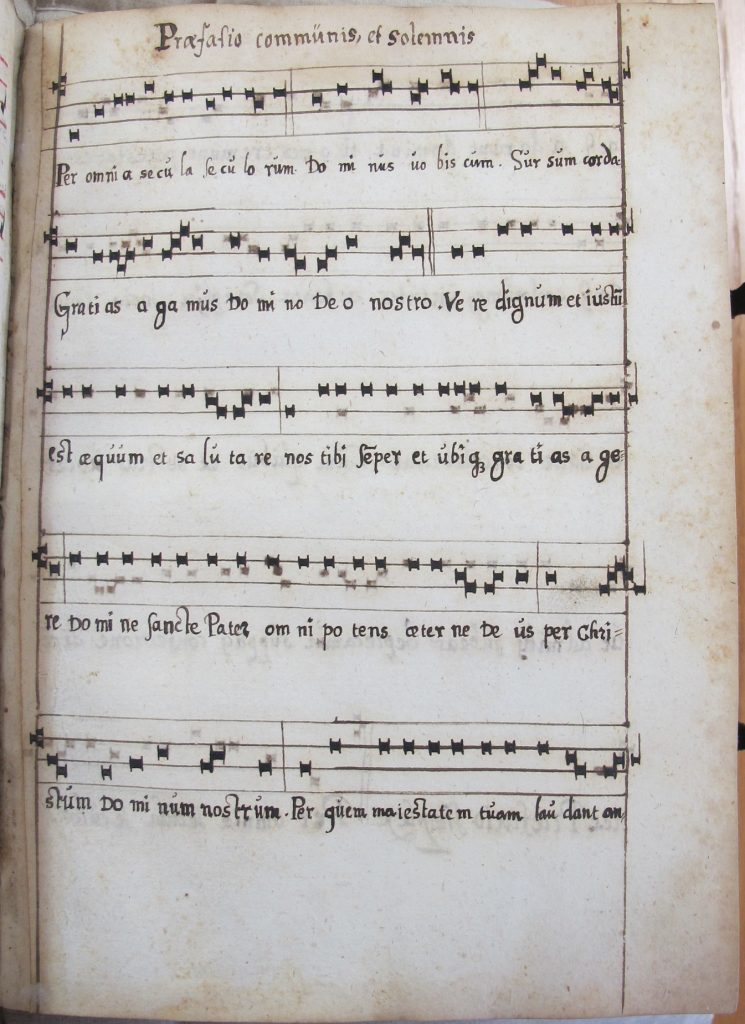 Præfasio commūnis, et solemnis
Per omni a secu la se cu lo rum. Do mi nus uo bis cum. Sur sum corda
Grati as a ga mus Do mi no De o nostro. Ve re dignum et iustū
est æquum et sa lu ta re nos tibi sēper et ubiqꝫ gra ti as a ge=
re Do mi ne sancte Pater om ni po tens æter ne De us per Chri=
stum Do mi num nostrum. Per quem maiestatem tuam lau dant an